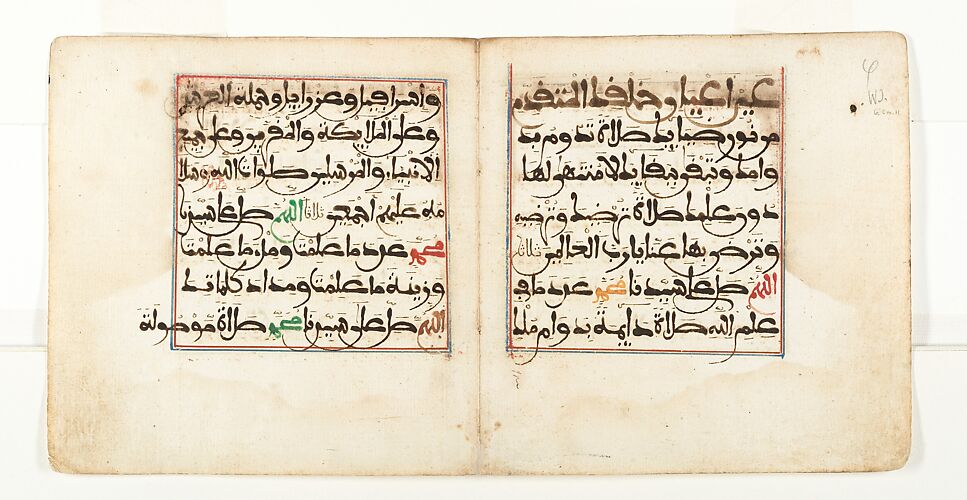 عين اعيان خلقك المتقدم
من نور ضيايك صلاة تدوم بد
وامك وتبقى ببقايك لا منتهى لها
دون علمك صلاة ترضيك وترضيه
وترضى بها عنا يا رب العالمين ثلاثا
اللهم صل على سيدنا محمد عدد ما في
علم الله صلاة دايمة بدوام ملك
واسرافيل وعزراييل وحملة العرش
وعلى الملايكة والمقربين وعلى جميع
الانبياء والمرسلين صلوات الله وسلا
مه عليهم اجمعين ثلاثا اللهم صل على سيدنا
محمد عدد ما علمت وملء ما علمت
وزنة ما علمت ومداد كلماتك
اللهم صل على سيدنا محمد صلاة موصولة